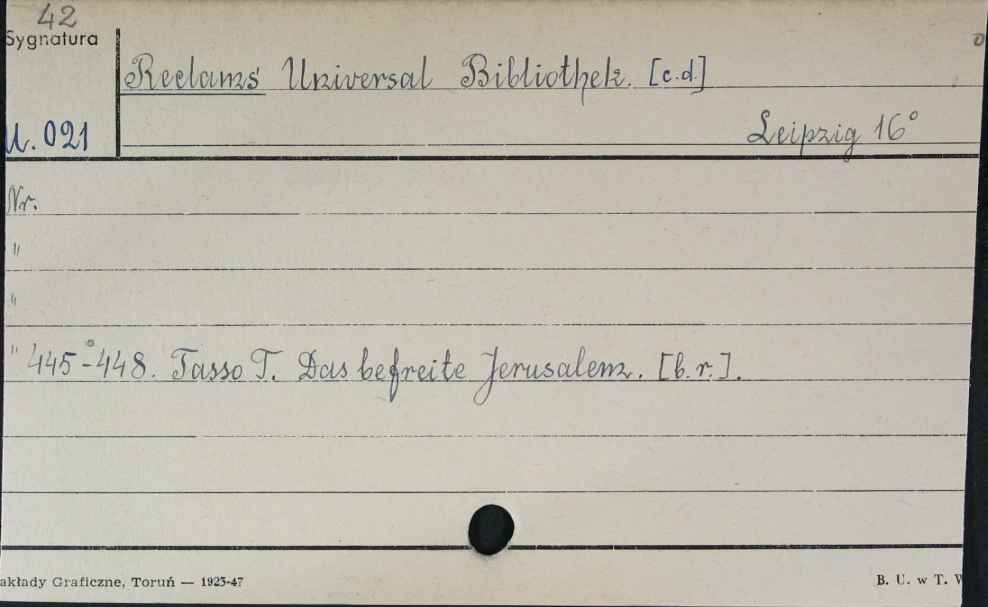 42
Sygnatura
Reclams Universal Bibliothek. [c.d.]
U. 021
Leipzig 16°
Nr.
"
"
" 445-448. Tasso T. Das befreite Jerusalem. [b.r.].
akłady Graficzne, Toruń — 1923-47
B. U. w T.